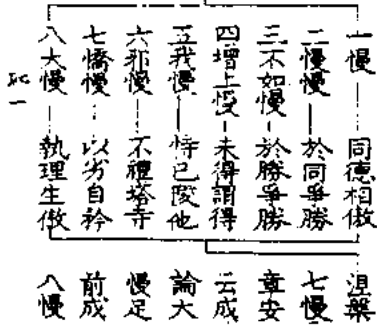 一慢——同德相傲
二慢慢——於同爭勝
三不如慢—於勝爭勝
四增上慢—未得謂得
五我慢——恃己陵他
六邪慢——不禮塔寺
七憍慢——以劣自矜
八大慢——執理生傲
涅槃
七慢
章安
云成
論大
慢足
前成
八慢